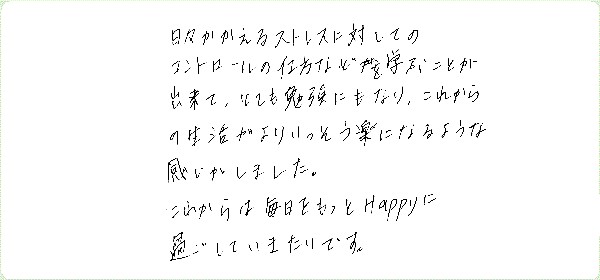 日々かかえるストレスに対しての
コントロールの仕方などを学ぶことが
出来て、とても勉強にもなり、これから
の生活がよりいっそう楽になるような
感じがしました。
これからは毎日をもっとHappyに
過ごしていきたいです。